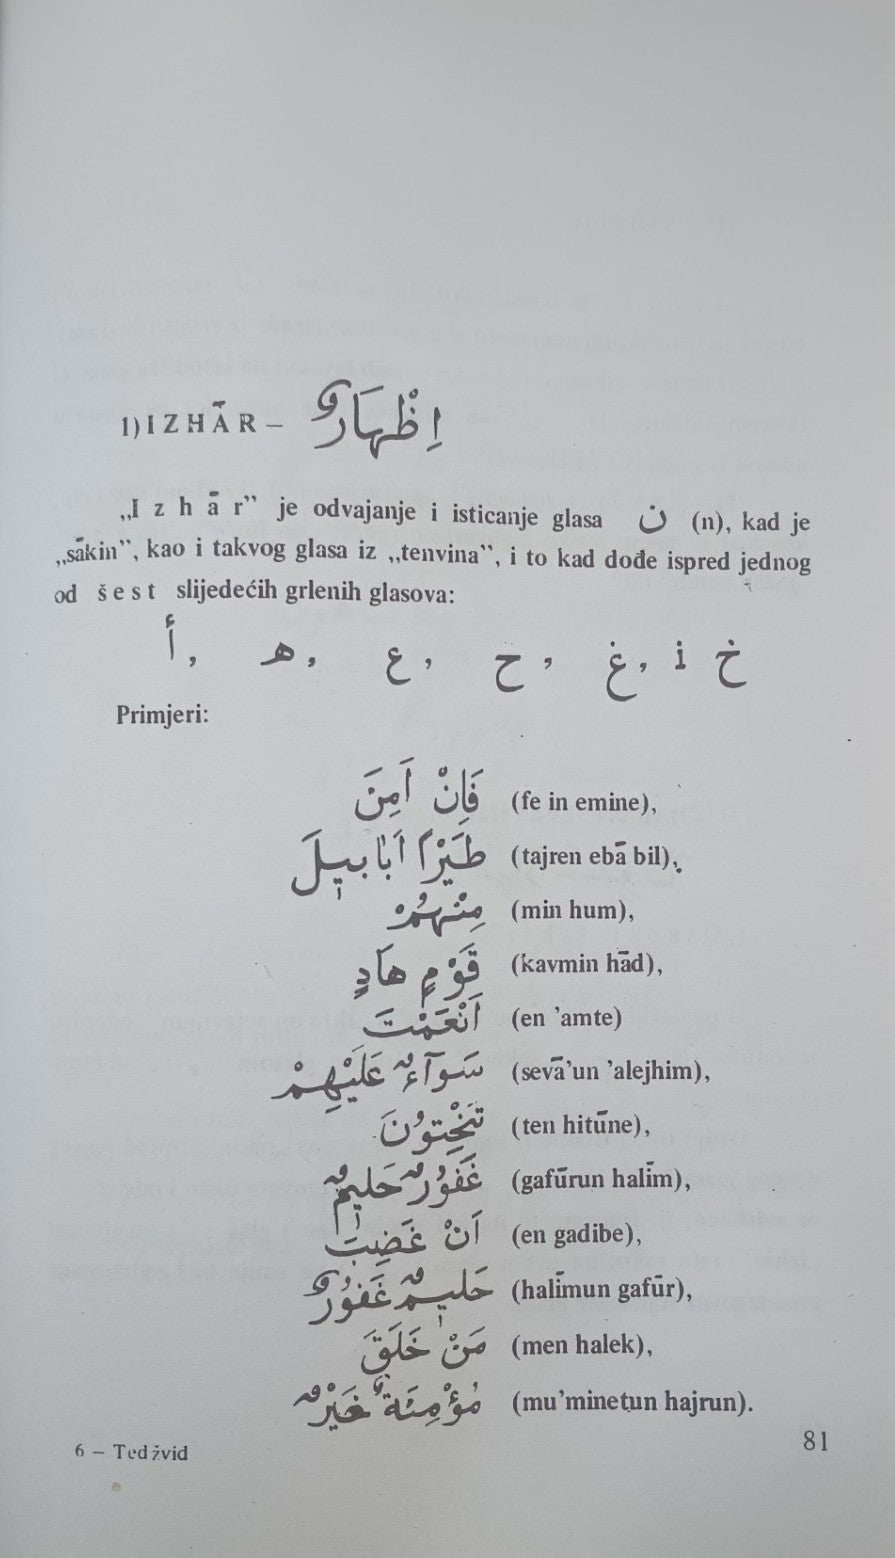 1) I Z H Ā R – اِظْهَارٌ
„I z h ā r” je odvajanje i isticanje glasa ن (n), kad je
„sākin”, kao i takvog glasa iz „tenvina”, i to kad dođe ispred jednog
od š e s t slijedećih grlenih glasova:
أ , ه , ع , ح , غ , i خ
Primjeri:
فَاِنْ اَمِنَ (fe in emine),
طَيْرًا اَبَابٖيلَ (tajren ebā bil),
مِنْهُمْ (min hum),
قَوْمٍ هَادٍ (kavmin hād),
اَنْعَمْتَ (en ’amte)
سَوَآءٌ عَلَيْهِمْ (sevā’un ’alejhim),
تَنْحِتُونَ (ten hitūne),
غَفُورٌ حَلٖيمٌ (gafūrun halīm),
اَنْ غَضِبَ (en gadibe),
حَلٖيمٌ غَفُورٌ (halīmun gafūr),
مَنْ خَلَقَ (men halek),
مُؤْمِنَةٌ خَيْرٌ (mu’minetun hajrun).
6 – Tedžvid
81